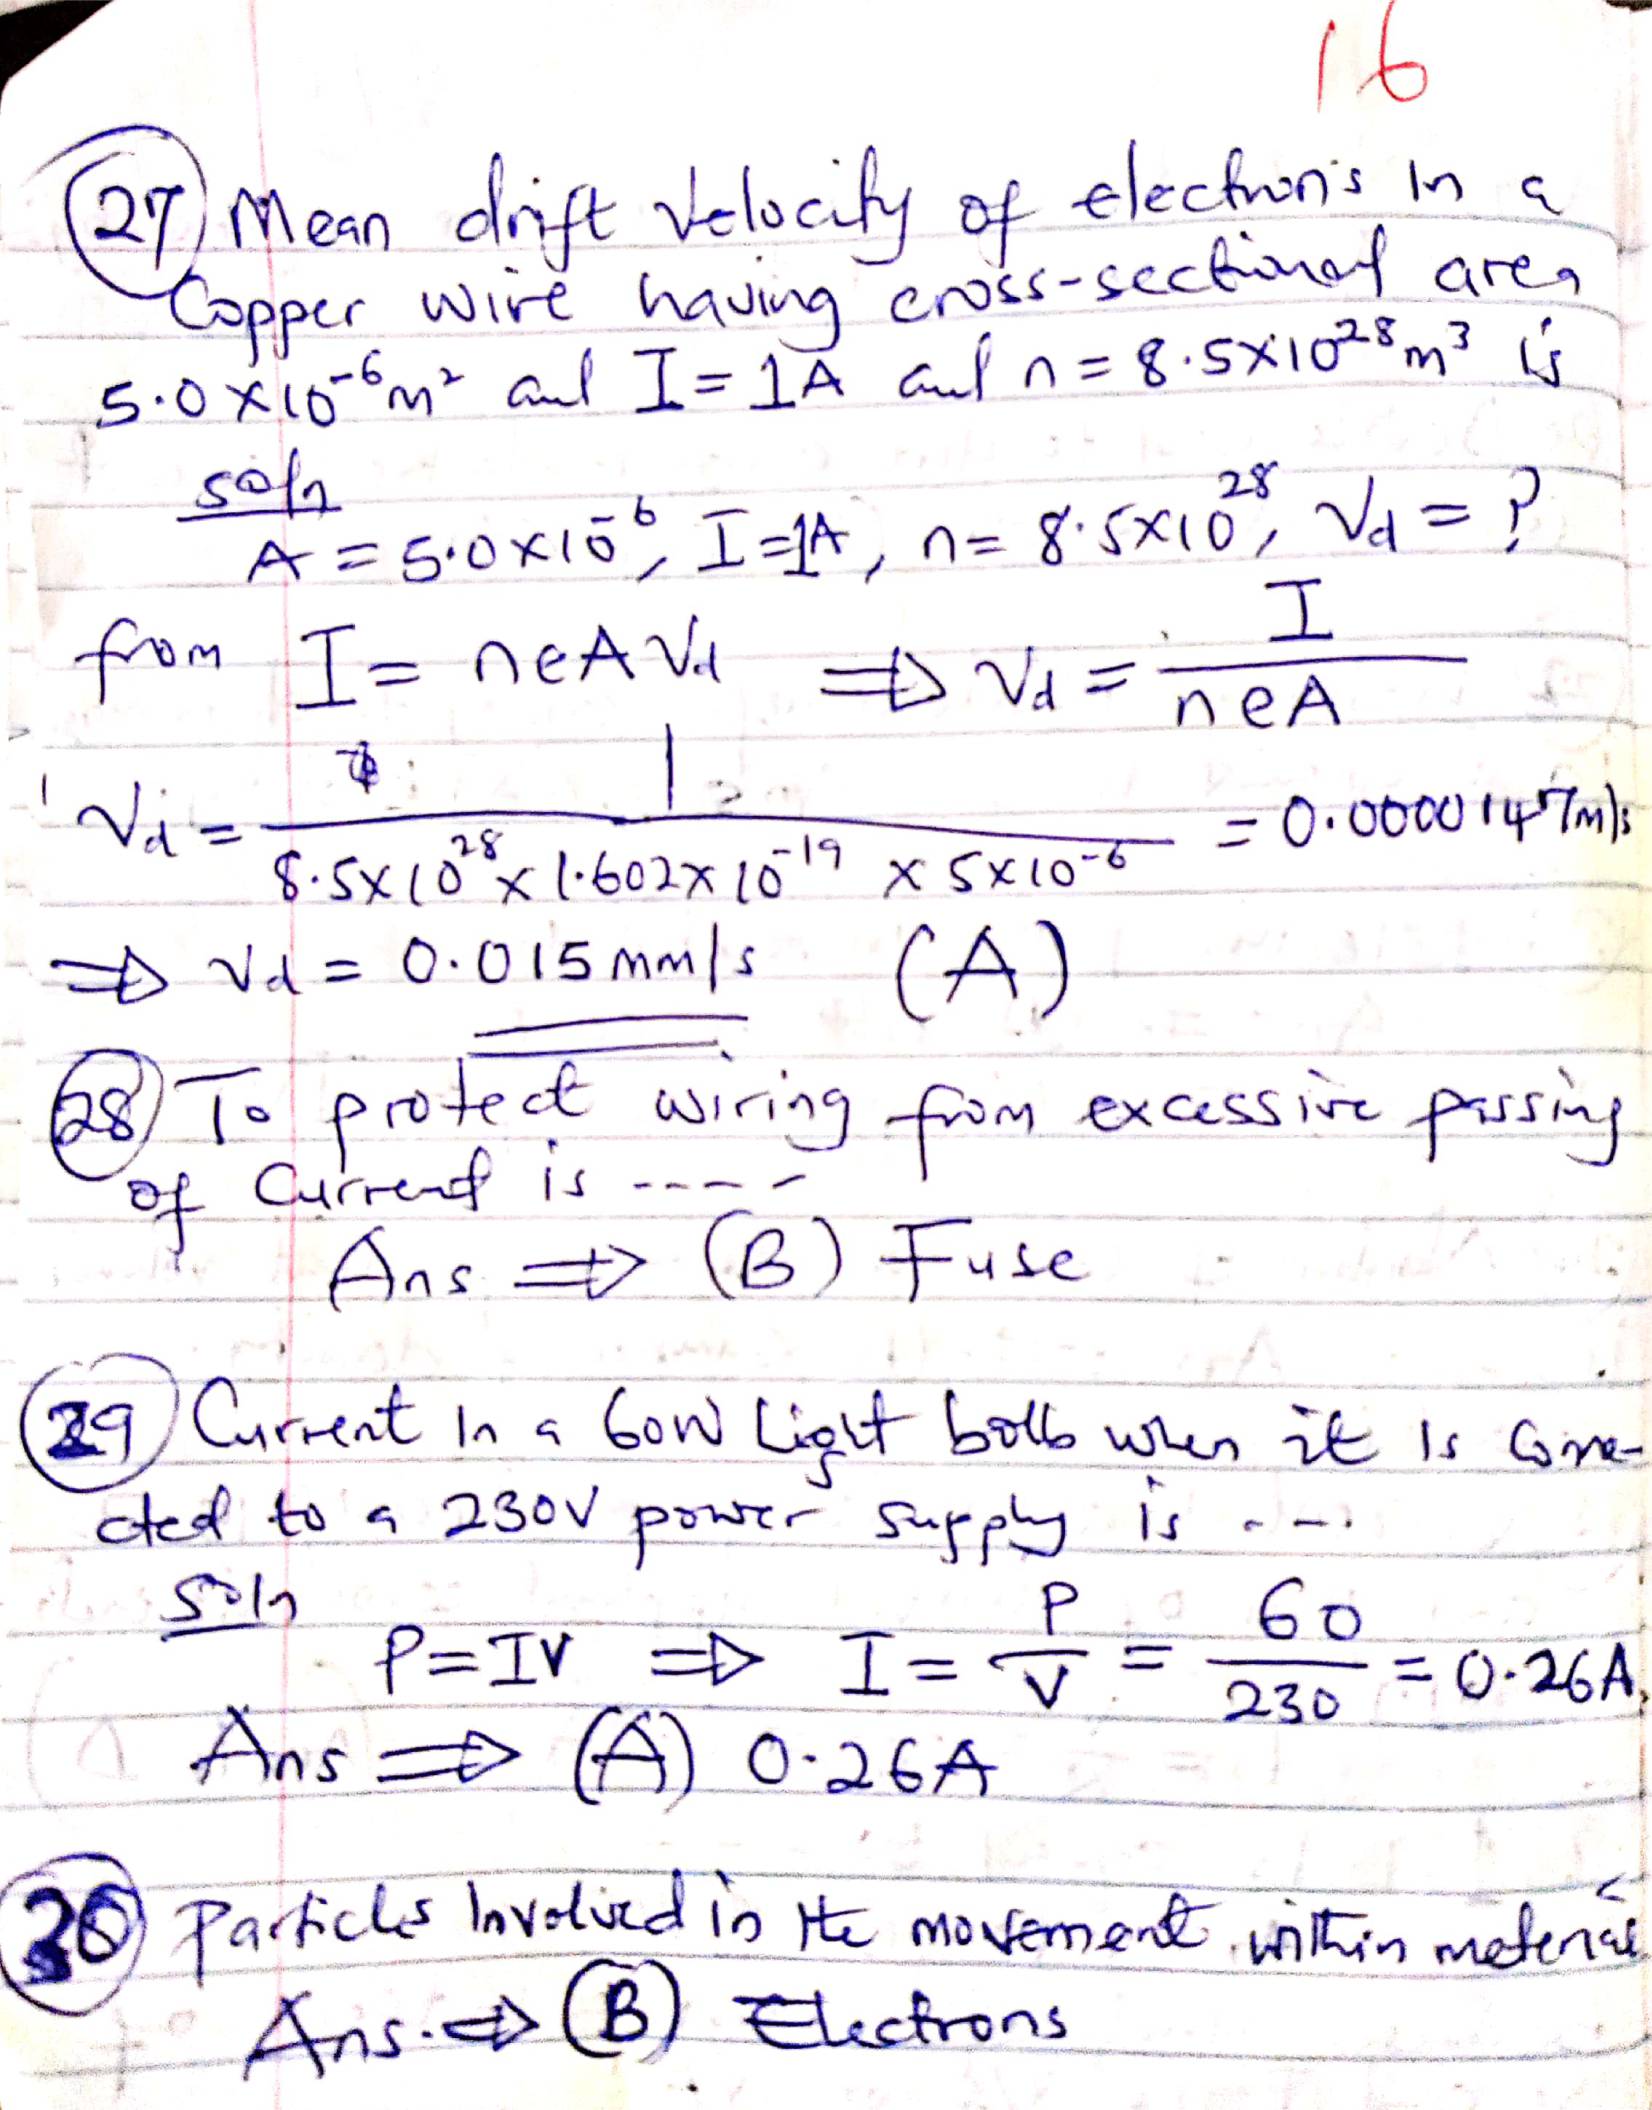 16
(27) Mean drift velocity of electrons in a
Copper wire having cross-sectional area
5.0×10⁻⁶m² and I = 1A and n = 8.5×10²⁸m³ is
soln
A = 5.0×10⁻⁶, I=1A, n= 8.5×10²⁸, Vd = ?
from I = neAVd ⇒ Vd = I/neA
Vd = 1/(8.5×10²⁸ × 1.602×10⁻¹⁹ × 5×10⁻⁶) = 0.0000147m/s
⇒ Vd = 0.015mm/s (A)
(28) To protect wiring from excessive passing
of Current is ----
Ans ⇒ (B) Fuse
(29) Current in a 60W Light bolb when it is Conne-
cted to a 230V power supply is ...
Soln
P=IV ⇒ I = P/V = 60/230 = 0.26A.
Ans ⇒ (A) 0.26A
(30) Particles Involved in the movement within
Ans. ⇒ (B) Electrons